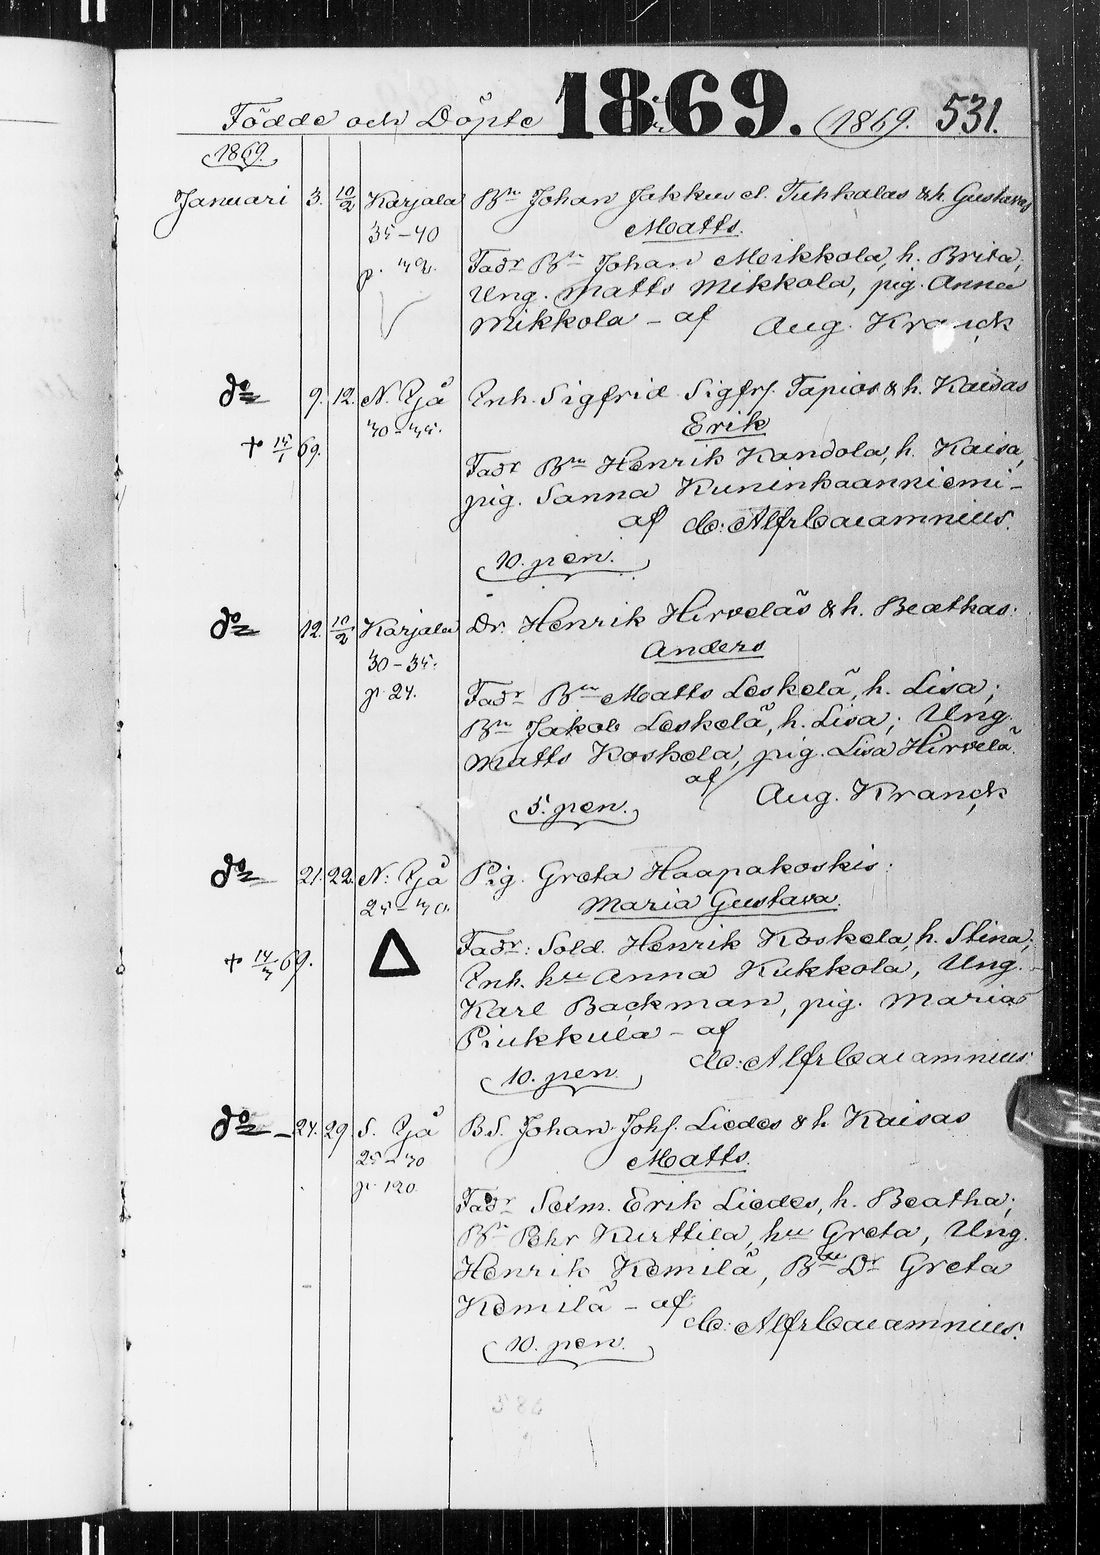 Födde och Döpte 1869. 1869. 531.
1869.
Januari 3. 10/2 Karjala Bn Johan Jakkus el. Tuhkalas & h. Gustavas
35-40 Matts.
Fadr Bn Johan Meikkola, h. Brita,
p. 72. Ung. Matts Mikkola, pig. Anna
Mikkola - af Aug. Kranck
do 9. 12. N. Ijå Inh. Sigfrid Sigfrs. Tapios & h. Kaisas
30-35. Erik
+ 15/1 69. Fadr Bn Henrik Kandola, h. Kaisa,
pig. Sanna Kuninkaanniemi -
af C: Alfr Caiamnius.
10. pen.
do 12. 10/2 Karjala Dr. Henrik Hirveläs & h. Beathas.
30-35. Anders
p 24. Fadr Bn Matts Leskelä, h. Lisa;
Bn Jakob Leskelä, h. Lisa; Ung.
Matts Koskela, pig. Lisa Hirvelä.
af Aug. Kranck
5. pen.
do 21. 22. N. Ijå Pig. Greta Haapakoskis.
25-30. Maria Gustava.
Fadr: Sold. Henrik Koskela, h. Stina;
+ 69. Inh. hu Anna Kukkola, Ung.
Karl Backman, pig. Maria
Piukkula - af
C: Alfr Caiamnius
10. pen
do - 24. 29. S. Ijå BS. Johan Johs. Liedes & h. Kaisas
25-30 Matts.
p 120. Fadr Sexm. Erik Liedes, h. Beatha;
Bn Pehr Kurttila, hu Greta, Ung.
Henrik Kemilä, Bde Dr Greta
Kemilä - af C: Alfr Caiamnius.
10. pen.